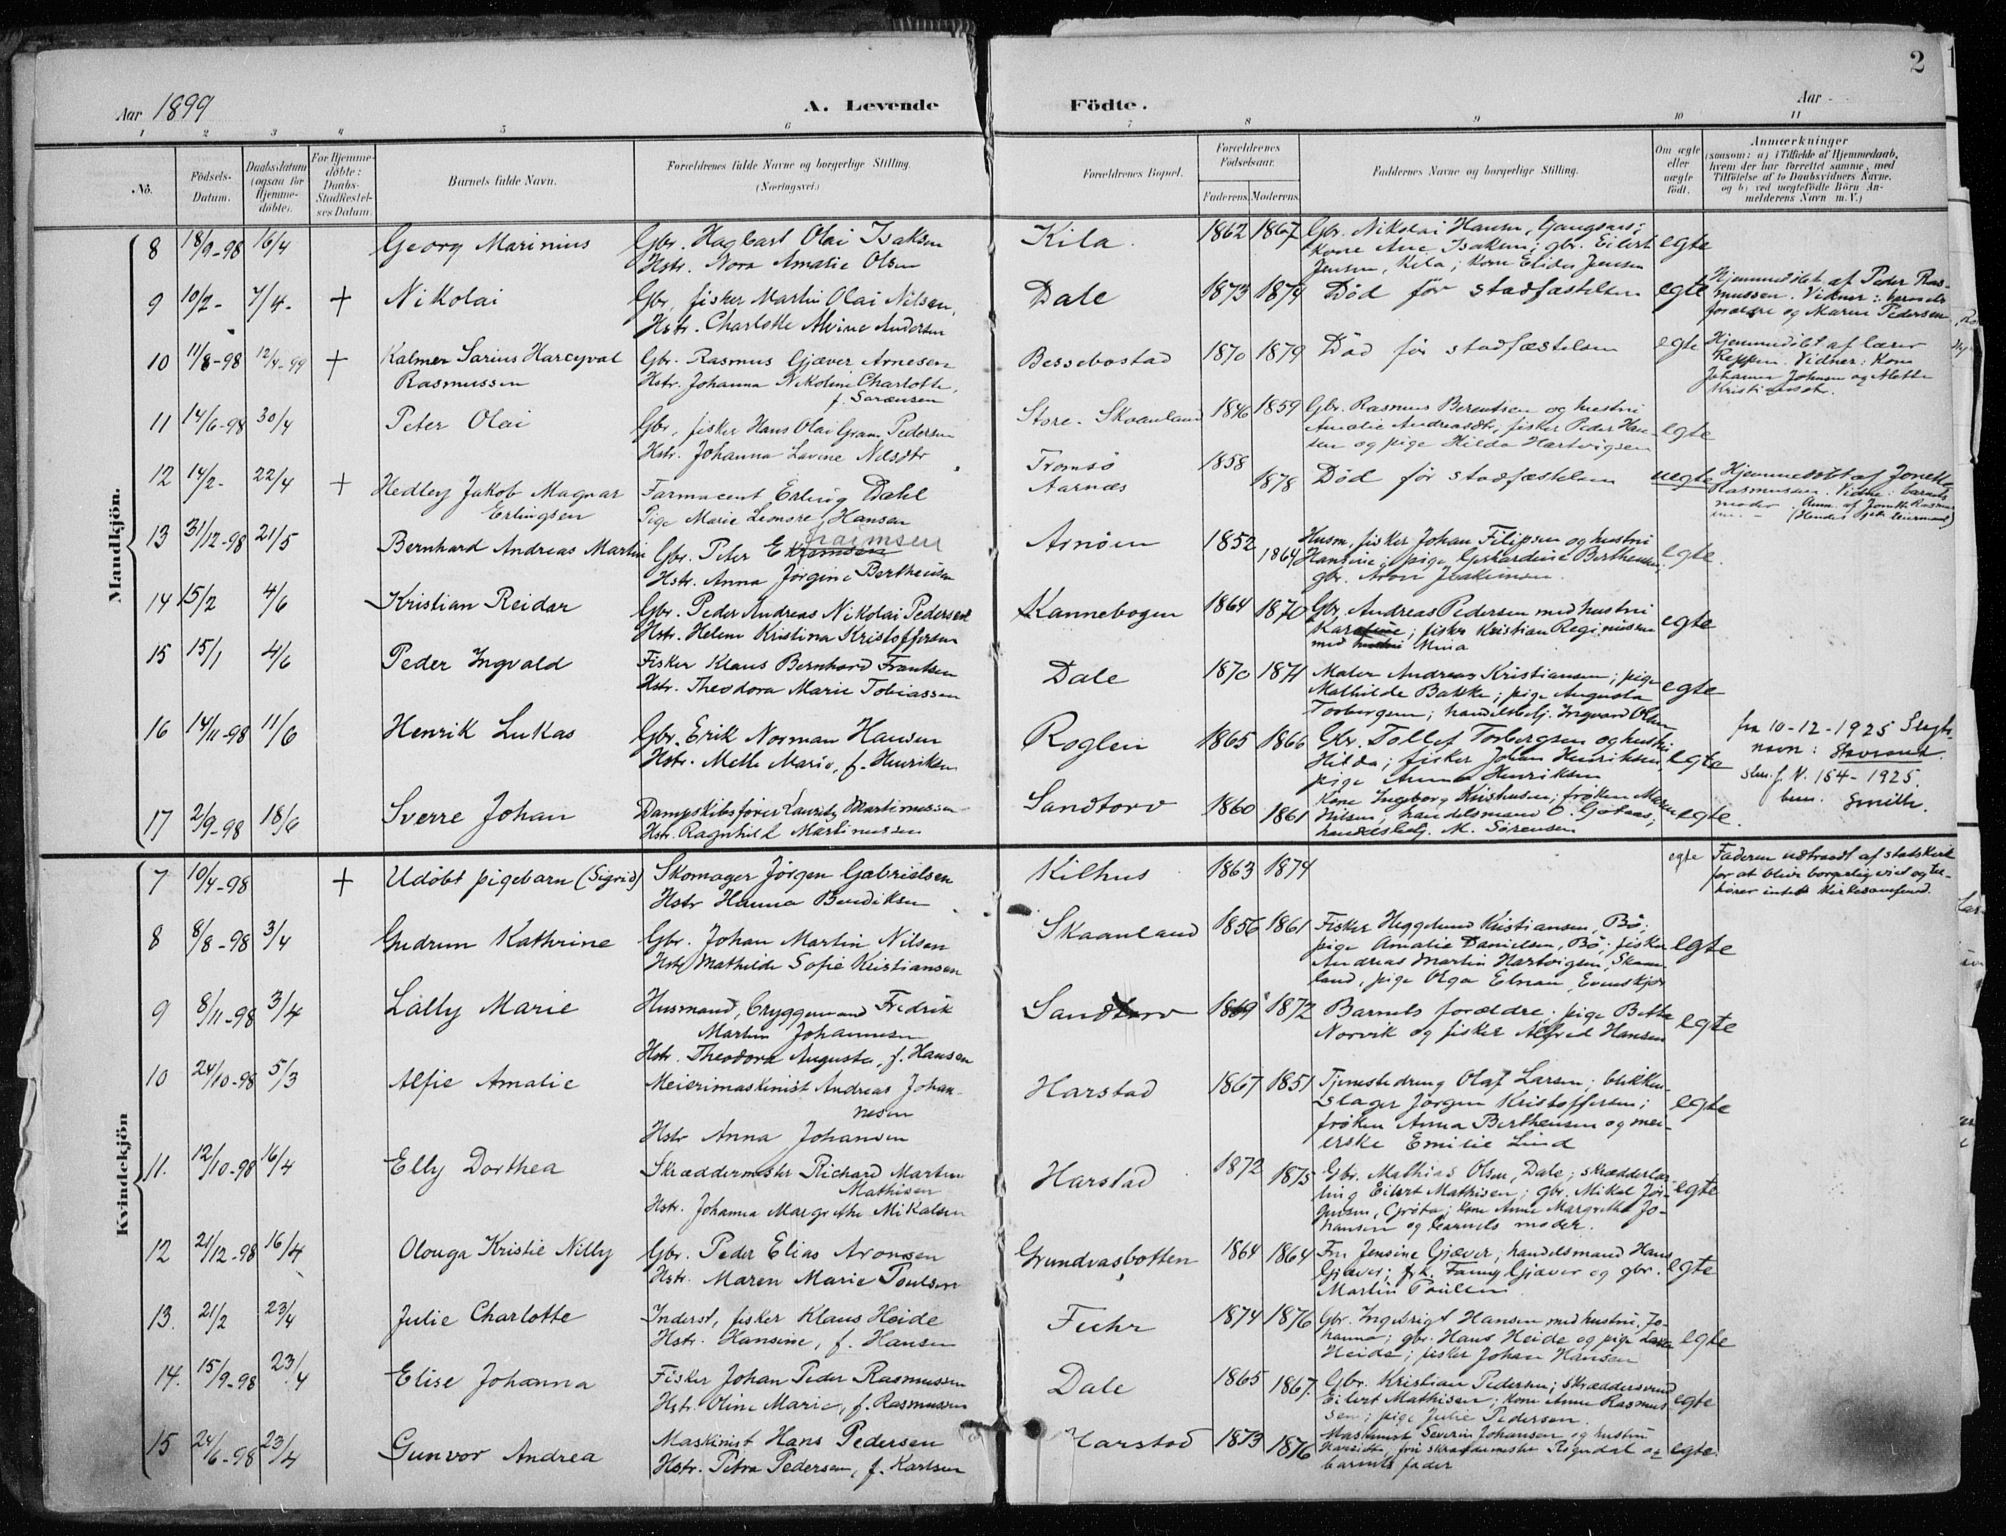 2
Aar 1899
A. Levende
Födte.
Aar
1 2 3 4 5 6 7 8 9 10 11
No.
Födsels-Datum.
Daabsdatum (ogsaa for Hjemme-döbte).
For Hjemme-döbte: Daabs-Stadfæstel-ses Datum.
Barnets fulde Navn.
Forældrenes fulde Navne og borgerlige Stilling. (Næringsvei.)
Forældrenes Bopæl.
Forældrenes Födselsaar.
Faderens. Moderens.
Faddernes Navne og borgerlige Stilling.
Om ægte eller uægte födt.
Anmærkninger
(saasom: a) i Tilfælde af Hjemmedaab, hvem der har forrettet samme, med Tilföielse af to Daabsvidners Navne, og b) ved uægtefödte Börn An-melderens Navn m. V.)
Mandkjön.
8 18/9-98 16/4 Georg Marinius
Gbr. Hagbart Olai Isaksen
Hstr. Nora Amalie Olsen
Kila. 1862 1867
Gbr. Nikolai Hansen,
Kone Ane Isaksen; gbr. Eilert
Jensen, Kila; kone Elida Jensen
egte
9 10/2- 7/4- + Nikolai
Gbr, fisker Martin Olai Nilsen,
Hstr. Charlotte Alvine Andersen
Dale 1873 1879 Död för stadfæstelsen egte
Hjemmedöbt af Peder Ras-
mussen. Vidner: barnets
forældre og Maren Pedersen
10 11/8-98 12/4-99 + Kalmer Sarius Harcyval
Rasmussen
Gbr. Rasmus Gjæver Arnesen
Hstr. Johanna Nikoline Charlotte,
f. Sørensen
Bessebostad 1870 1879 Död för stadfæstelsen egte
Hjemmedöbt af lærer
Reppen. Vidner: Kone
Johanna Johnsen og Aletta
11 14/6-98 30/4 Peter Olai
Gbr, fisker Hans Olai Gram Pedersen
Hstr. Johanna Lavine Nilsdtr
Store-Skaanland 1846 1859
Gbr. Rasmus Berentsen og hustru
Amalie Andreasdtr, fisker Peder Han-
sen og pige Hilda Hartvigsen
egte
12 14/2- 22/4 + Hedley Jakob Magnar
Erlingsen
Farmacent Erling Dahl
Pige Marie Leonore Hansen
Tromsö 1858
Aarnæs 1878
Död för stadfæstelsen uegte
Hjemmedöbt af Jonetta
Rasmussen. Vidne: barnets
moder
13 31/12-98 21/5 Bernhard Andreas Martin
Gbr. Peter
Hstr. Anna Jørgine Bertheusen
Arnöen 1852 1864
Husm, fisker Johan Filipsen og hustru
Hansine; pige Gerhardine Bertheusen;
gbr. Aron Joakimsen.
egte.
14 15/2 4/6 Kristian Reidar
Gbr. Peder Andreas Nikolai Pedersen
Hstr. Helene Kristina Kristoffersen
Kannebogen 1864 1870
Gbr. Andreas Pedersen med hustru
Karoline; fisker Kristian Reginiussen
med hustru Mina
egte
15 15/1 4/6 Peder Ingvald
Fisker Klaus Bernhard Frantsen
Hstr. Theodora Marie Tobiassen
Dale 1870 1871
Maler Andreas Kristiansen; pige
Mathilde Bakke; pige Augusta
Torbergsen; handelsbetj. Ingvard Olsen
egte
16 14/11-98 11/6 Henrik Lukas
Gbr. Erik Norman Hansen
Hstr. Mette Marie, f. Henriksen
Roglen 1865 1866
Gbr. Tollef Torbergsen og hustru
Hilda; fisker Johan Henriksen,
pige Anna Henriksen
egte
fra 10-12-1925 Slegts-
navn:
skm. f. N. 154-1925.
17 2/9-98 18/6 Sverre Johan
Dampskibsfører Lauritz Martinussen
Hstr. Ragnhild Martinussen
Sandtorv 1860 1861
Kone Ingeborg Kristiansen; fröken Maren
Nilsen; handelsmand O. Gjetaas;
handelsbetj. M. Sörensen
egte.
Kvindekjön
7 10/4-98 + Udöbt pigebarn (Sigrid)
Skomager Jørgen Gabrielsen
Hstr Hanna Bendiksen
Kilhus 1863 1874 egte
Faderen udtraadt af statskirk
for at blive borgerlig viet og til-
hører intet kirkesamfund.
8 8/8-98 3/4 Gudrun Kathrine
Gbr. Johan Martin Nilsen
Hstr Mathilde Sofie Kristiansen
Skaanland 1856 1861
Fisker Heggelund Kristiansen, Bö;
pige Amalie Danielsen, Bö; fisker
Andreas Martin Hartvigsen, Skaan-
land; pige Olga Elvan, Evenskjær
egte
9 8/11-98 3/4 Lally Marie
Husmand, bryggemand Fredrik
Martin Johannesen
Hstr. Theodora Augusta, f. Hansen
Sandtorv 1869 1872
Barnets forældre; pige Betta
Norvik og fisker Alfred Hansen
egte
10 24/10-98 5/3 Alfie Amalie
Meierimaskinist Andreas Johan-
nesen
Hstr Anna Johansen
Harstad 1867 1851
Tjenestedreng Olaf Larsen; blikken-
slager Jörgen Kristoffersen;
fröken Anna Bertheusen og mei-
erske Emilie Lind
egte
11. 12/10-98 16/4 Elly Dorthea
Skræddermester Richard Martin
Mathisen
Hstr. Johanna Margrethe Mikalsen
Harstad 1872 1875
Gbr. Mathias Olsen, Dale; skrædderlær-
ling Eilert Mathisen; gbr. Mikal Jør-
gensen, Grötø; kone Anne Margrethe Jo-
hansen og barnets moder.
egte
12 21/12-98 16/4 Olouga Kristie Nilly
Gbr. Peder Elias Aronsen
Hstr. Maren Marie Poulsen
Grundvasbotten 1864 1864
Fru Jensine Gjæver; handelsmand Hans
Gjæver; frk. Fanny Gjæver og gbr.
Martin Poulsen
egte
13. 21/2 23/4 Julie Charlotte
Inderst, fisker Klaus Heide
Hstr. Hansine, f. Hansen
Fuhr 1874 1876
Gbr. Ingebrigt Hansen med hustru Jo-
hanna; gbr. Hans Heide og pige
Heide; fisker Johan Hansen
egte
14. 15/9-98 23/4 Elise Johanna
Fisker Johan Peder Rasmussen
Hstr. Oline Marie, f. Rasmussen
Dale 1865 1867.
Gbr. Kristian Pedersen; skræddersvend
Eilert Mathisen; kone Anne Rasmus-
sen; pige Julie Pedersen.
egte
15 24/6-98 23/4 Gunvor Andrea
Maskinist Hans Pedersen
Hstr. Petra Pedersen, f. Karlsen
Harstad 1873 1876
Maskinist Severin Johansen og hustru
fru skræddermester Rogndal og
barnets fader
egte.